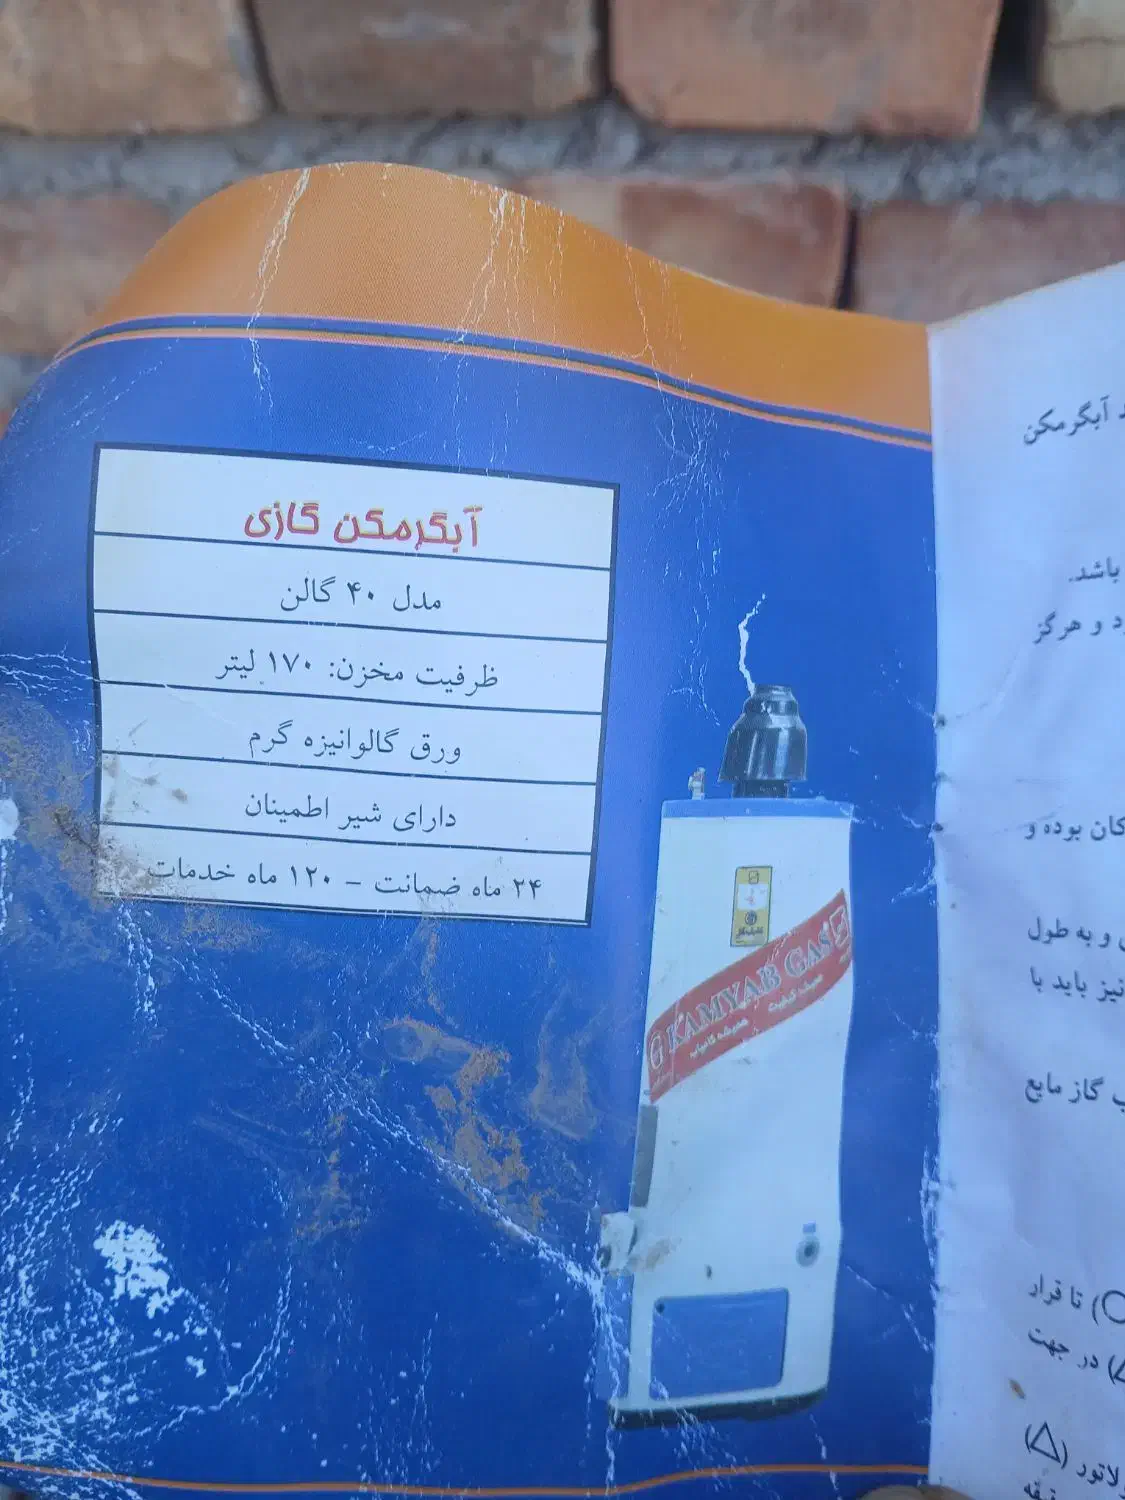 آبگرمکن گازی
مدل ۴۰ گالن
ظرفیت مخزن: ۱۷۰ لیتر
ورق گالوانیزه گرم
دارای شیر اطمینان
۲۴ ماه ضمانت – ۱۲۰ ماه خدمات
KAMYAB GAS
همیشه کامیاب
آبگرمکن
باشد.
د و هرگز
کان بوده و
و به طول
نیز باید با
گاز مایع
تا قرار
در جهت